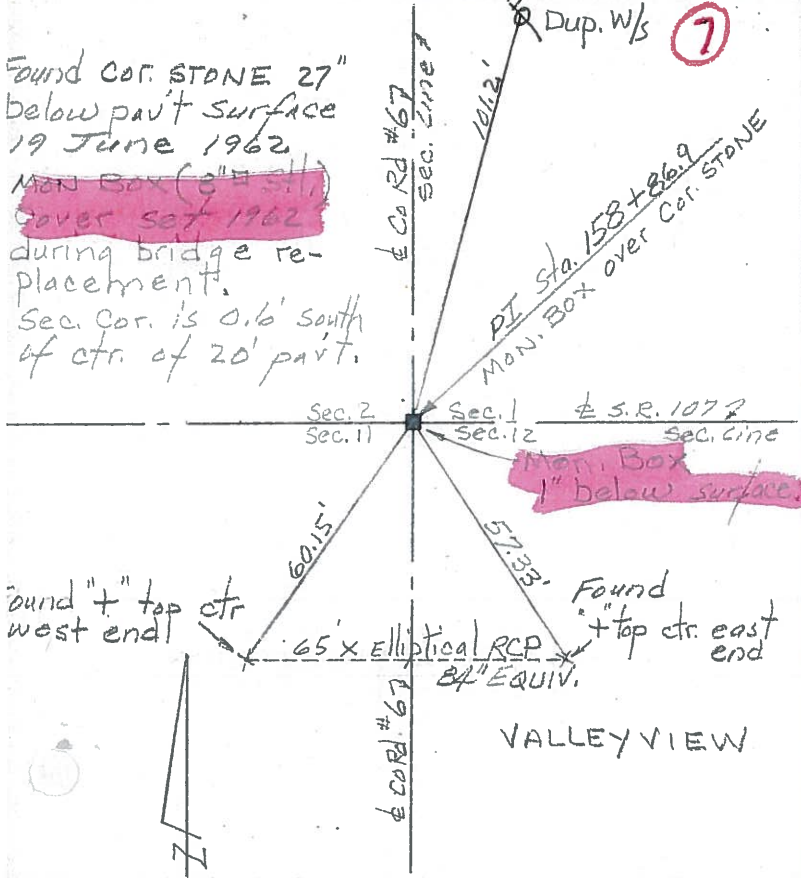 Dup. W/s
7
Found Cor. STONE 27"
below pav't surface
19 June 1962
Mon Box (8"
Cover set 1962
during bridge re-
placement.
Sec. Cor. is 0.6' south
of ctr. of 20' pav't.
℄ Co Rd #67
Sec. Line
101.2'
PI Sta. 158+86.9
MON. BOX over Cor. STONE
Sec. 2
Sec. 1
℄ S.R. 107
Sec. 11
Sec. 12
Sec. Line
Mon. Box
1" below surface.
60.15'
57.33'
Found "+" top ctr
west end
Found
"+" top ctr. east
end
65' x Elliptical RCP
84" EQUIV.
℄ CORd. #67
VALLEYVIEW
Z